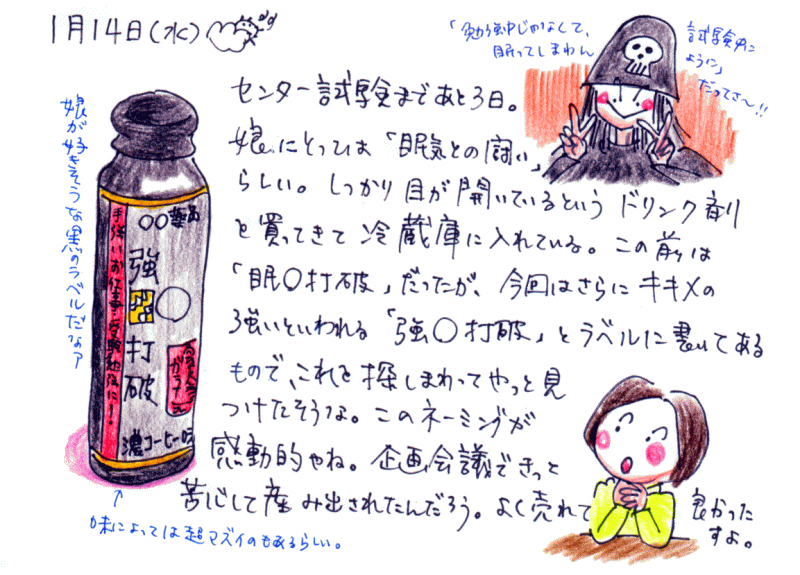 1月14日(水)
「勉強中じゃなくて、試験中に
眠ってしまわんように」
だってさ〜!!
センター試験まであと3日。
娘にとっては「眠気との闘い」
らしい。しっかり目が開いているというドリンク剤
を買ってきて冷蔵庫に入れている。この前は
「眠〇打破」だったが、今回はさらにキキメの
強いといわれる「強〇打破」とラベルに書いてある
もので、これを探しまわってやっと見
つけたそうな。このネーミングが
感動的やね。企画会議できっと
苦心して産み出されたんだろう。よく売れて良かった
すよ。
娘が好きそうな黒のラベルだなァ
〇〇薬品
強〇打破
手強いお仕事・受験勉強に!
濃コーヒー味
味によっては超マズイのもあるらしい。